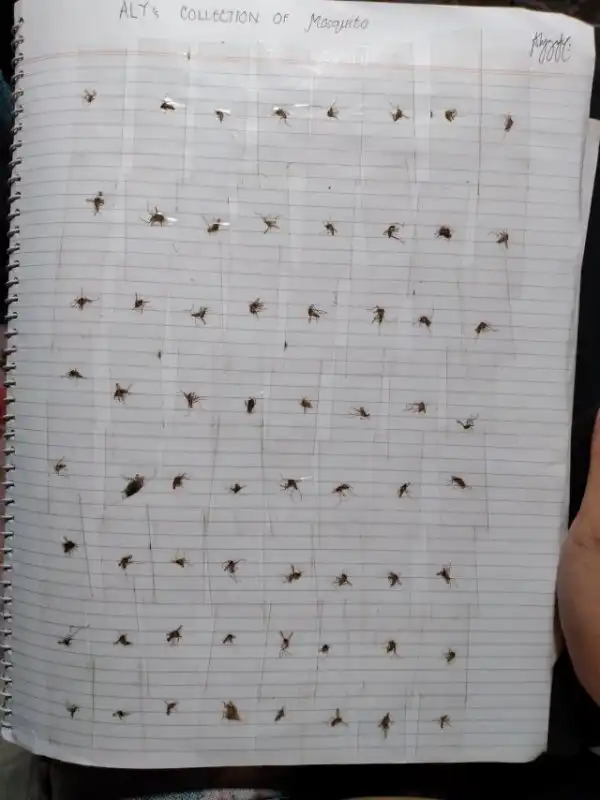 ALY's COLLECTION OF Mosquito